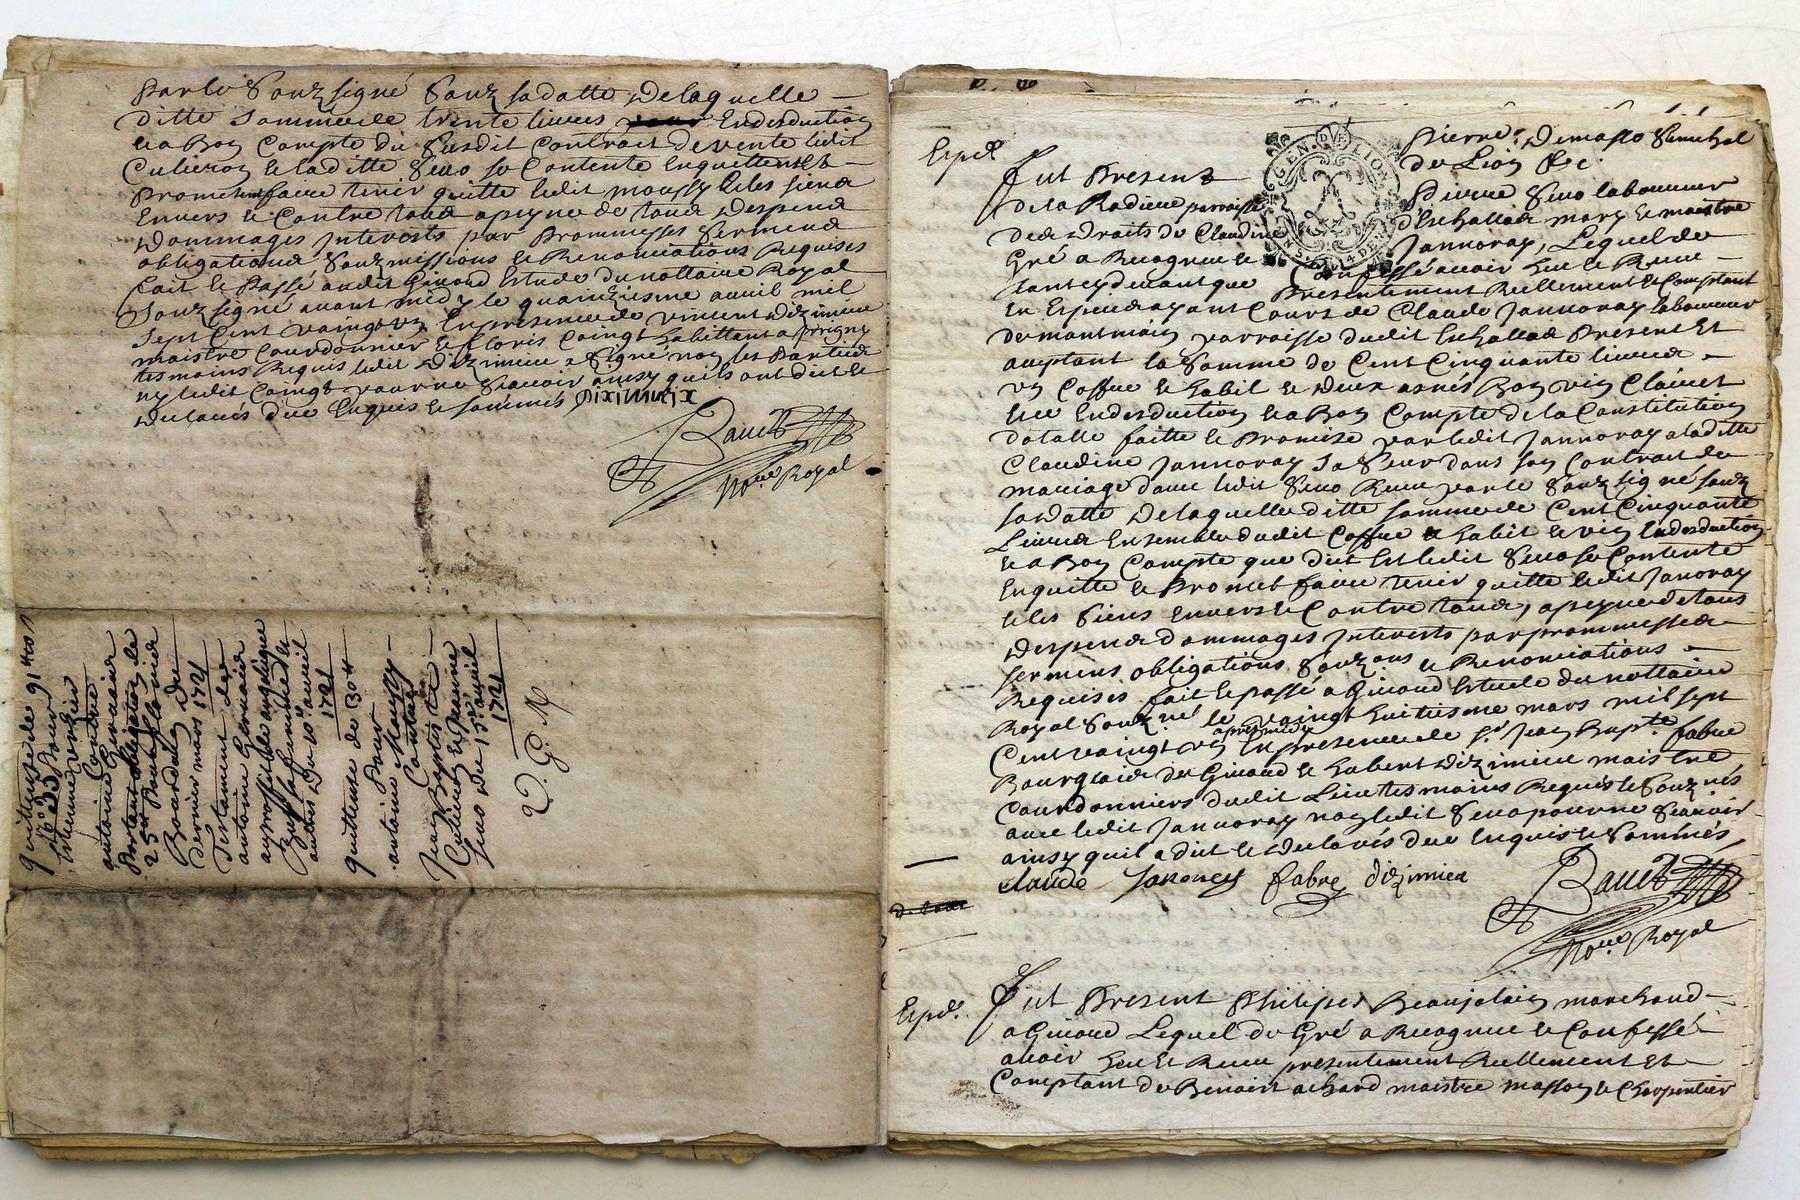 Par le Souz signé Souz sa datte De laquelle
ditte Somme de trente livres En desduction
et a Bon Compte du Susdit Contrait de vente ledit
Culieron et la ditte Seuo se Contente En quittent et
Promettent faire tenir quitte ledit moussy et les siens
Envers et Contre tous a peyne de tous Despens
Dommages Interests par Prommesses Sermens
obligations Souzmissions et Renonciations Requises
fait et Passé audit Giuord Estude du nottaire Royal
Souz signé avant midy le quainziesme auril mil
Sept Cent vaingt vn En presence de vincent Dizimieu
maistre Courdonnier et Cloris Coingt habittant a
tesmoins Requis ledit Dizimieu a Signé non les Parties
ny ledit Coingt pour ne Scauoir ainsy quils ont dict et
Declarés due Enquis et Sommés
No.re Royal
quittense de 91
Pour
Estienne
Contre
antoine Geruais
Portant obligation de
25
Bourdely du
dernier mars 1721
Testament de
antoine Geruais
au proffit de
sa femme et
autres du 10e auril
1721
quittense de 130
Pour
antoine Moussy
Contre
Jean Baptiste
Culieron et Jeanne
Seuo du 15e auril
1721
Pierre Demasso Senechal
de Lion &c.
Exped.
Fut Present Pierre Seuo laboureur
de la Radiere parroisse d'Eschallas mary et maistre
des Droits de Claudine Jannoray, Lequel de
Gré a Recognu et Confessé auoir Heu et Receu
GEN. DE LION
presentement Reellement et Comptant
En Espece ayant Cours de Claude Jannoray laboureur
de montmain parroisse dudit Eschallas Present Et
aceptant la Somme de Cent Cinquante liures
vn Coffre et habit et deux asnés Bon vin Clairet
et ce En desduction et a Bon Compte de la Constitution
dotalle faitte et Promise par ledit Jannoray a laditte
Claudine Jannoray Sa Seur dans son Contrait de
mariage dauec ledit Seuo Receu par le Souz signé souz
sa Datte De laquelle ditte somme de Cent Cinquante
Liures Ensemble dudit Coffre et habit et vin En desduction
et a Bon Compte que dict Est ledit Seuo se Contente
En quitte et Promet faire tenir quitte ledit Janoray
et les Siens enuers et Contre tous, a peyne de tous
Despens Dommages Interests par prommesses
sermens obligations, Souz.ons et Renonciations
Requises fait et passé a Giuord Estude du nottaire
Royal Souz.né le vaingt huitiesme mars mil sept
Cent vaingt vn apres midy En presence de Sr Jean Bapte fabre
Bourgeois de Giuord et hubert Dizimieu maistre
Courdonniers dudit Lieu tesmoins Requis et Souz nés
auec ledit Jannoray non ledit Seuo pour ne Scauoir
ainsy quil a dict et declarés due Enquis et Sommés
claude Janorey fabre dizimieu
No.re Royal
Exped.
Fut Present Philipes Beaujolain marchand
a Giuord Lequel de Gré a Recognu et Confessé
auoir Heu Et Receu presentement Reellement Et
Comptant de Benoist achard maistre masson et Charpentier